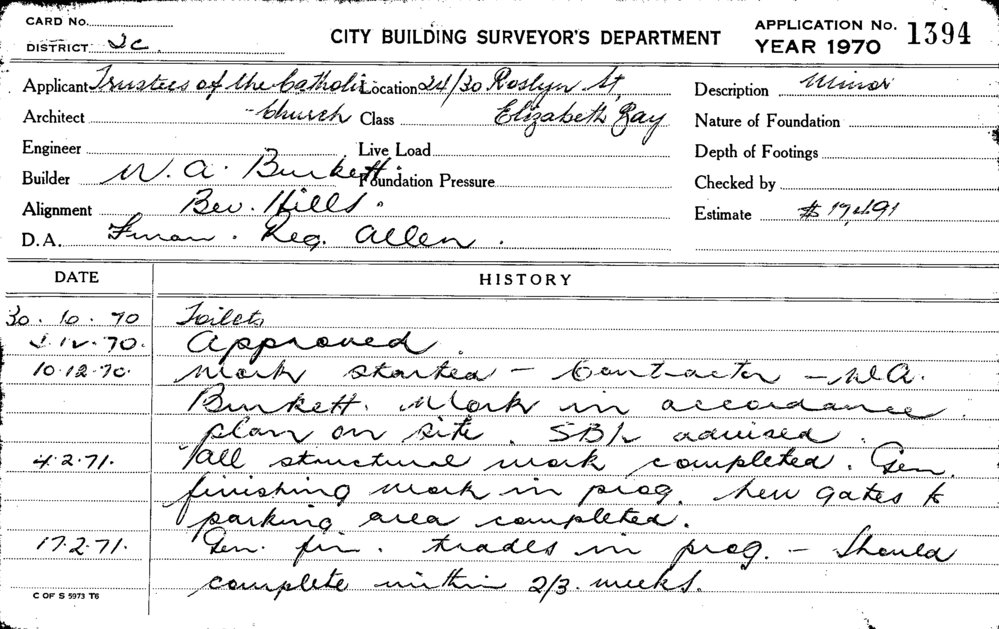 CARD No.
DISTRICT 2c
CITY BUILDING SURVEYOR'S DEPARTMENT
APPLICATION No. 1394
YEAR 1970
Applicant Trustees of the Catholic Location 24/30 Roslyn St, Description Minor
Architect Church Class Elizabeth Bay Nature of Foundation
Engineer Live Load Depth of Footings
Builder W. A. Burkett. Foundation Pressure Checked by
Alignment Bev. Hills. Estimate $ 17,491
D.A. Reg. Allen.
DATE HISTORY
30.10.70 Toilets
.12.70. Approved.
10.12.70. Work started - Contractor - W.A.
Burkett. Work in accordance
plan on site. advised.
4.2.71. All structural work completed. Gen.
finishing work in prog. New gates to
parking area completed.
17.2.71. Gen. fin. trades in prog. - Should
complete within 2/3 weeks.
C OF S 5973 T6